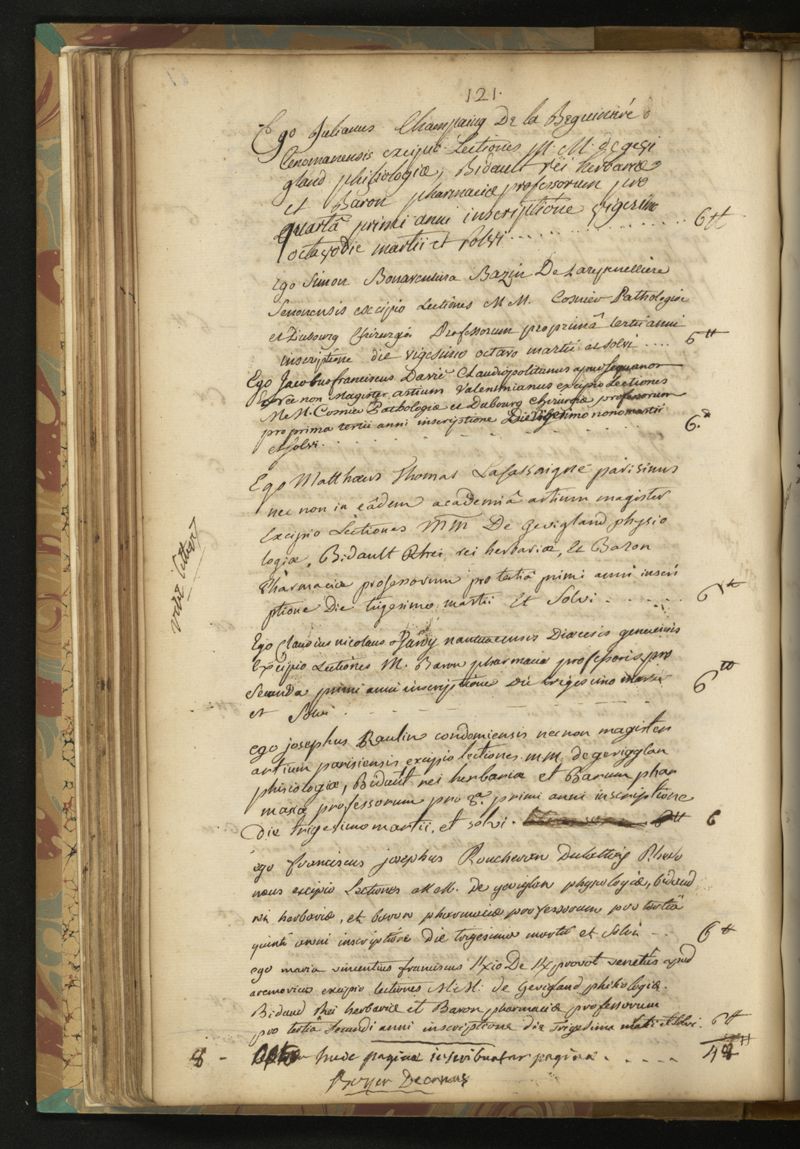 121.
Ego Julianus Champaing De la Beguinière
Cenomanensis excipio Lectiones M. M. de gevi
gland phisiologiæ, Bidault rei herbariæ
et Baron pharmaciæ professorum pro
quartâ primi anni inscriptione vigesimo
octavo die martii et solvi . . . . . . 6 tt
ego Simon Bonaventura Bazin De
Senonensis excipio Lectiones M M. Cosnier Pathologiæ
et Dubourg Chirurgiæ Professorum pro primâ tertii anni
inscriptione die vigesimo octavo martii et solvi . . . . 6 tt
Ego Jacobus franciscus David Claudiopolitanus apud sequanos
nec non Magister artium Valentinianus excipio Lectiones
M. M. Cosnier Pathologiæ et Dubourg Chirurgiæ professorum
pro prima tertii anni inscriptione Die vigesimo nono martii
et solvi . . . . . . 6.
Ego Matthæus Thomas Lasassaigne parisinus
nec non in eâdem academiâ artium magister
Excipio Lectiones MM De gevigland physio
logiæ, Bidault rei herbariæ, Et Baron
Pharmaciæ professorum pro tertiâ primi anni inscri
ptione Die trigesimo martii Et Solvi . . . . . . 6 tt
Ego Claudius nicolaus Jardy nantuacensis Diœcesis genevensis
Excipio Lectiones M. Baron pharmaciæ professoris pro
Secunda primi anni inscriptione die trigesimo martii
et Solvi . 6 tt
ego josephus Raulin condomiensis nec non magister
artium parisiensis excipio lectiones m.m. de gevigglan
phisiologiæ, Bidault rei herbariæ et Barum phar
maciæ professorum pro 3.a primi anni inscriptione
die trigesimo martii, et solvi . 6
ego franciscus josephus Rhedo
neus excipio Lectiones M. M. De geviglan physologiæ, bidaud
rei herbariæ, et baron pharmaciæ professorum pro tertiâ
anni inscriptione die trigesimo martii et solvi . . 6 tt
ego maria vincentius franciscus De provost venetus apud
aremoricos excipio lectiones M. M. de Gevigland phisiologiæ
Bidaud Rei herbariæ et Baron pharmaciæ professorum
pro tertia Secundi anni inscriptione die trigesima martii et solvi . 6 tt
8 - Octo in hac pagina inscribuntur pagina . . . . . 48 tt
Boyer Decanus